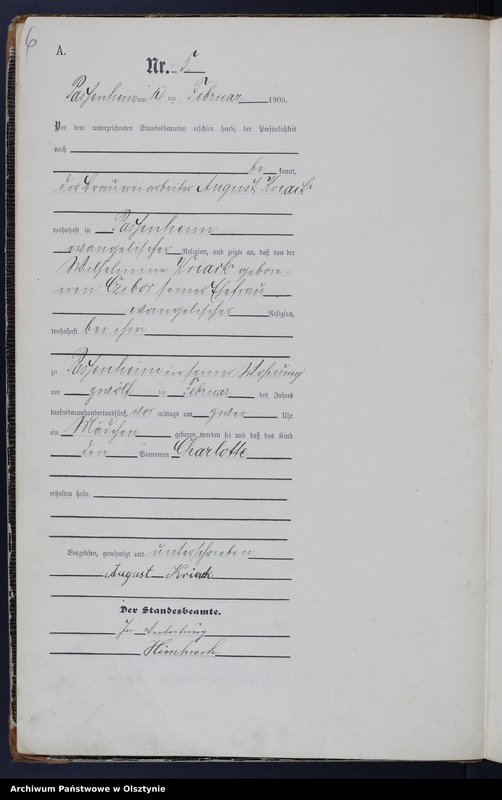 6
A.
Nr. 5
Passenheim am ten Februar 1905.
Vor dem unterzeichneten Standesbeamten erschien heute, der Persönlichkeit
nach
be kannt,
der Brauereiarbeiter August Kriack
wohnhaft in Passenheim
evangelischer Religion, und zeigte an, daß von der
Wilhelmine Kriack gebore-
nen Czibor seiner Ehefrau
evangelischer Religion,
wohnhaft bei ihm
zu Passenheim in seiner Wohnung
am zwölf ten Februar des Jahres
tausendneunhundertundfünf, vor mittags um zwei Uhr
ein Mädchen geboren worden sei und daß das Kind
den Vornamen Charlotte
erhalten habe.
Vorgelesen, genehmigt und unterschrieben
August Kriack
Der Standesbeamte.
In Vertretung
Archiwum Państwowe w Olsztynie